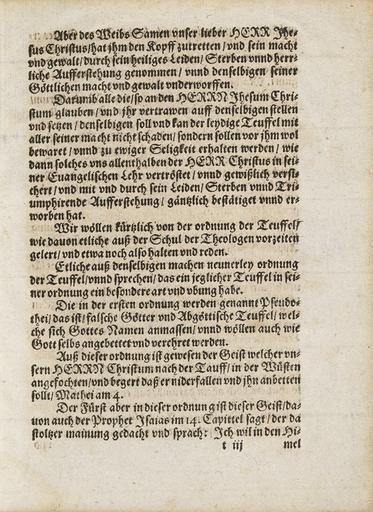 Aber des Weibs Samen vnser lieber HERR Jhe-
sus Christus/hat jhm den Kopff zutretten/ vnd sein macht
vnd gewalt/durch sein heiliges Leiden/ Sterben vnnd herr-
liche Aufferstehung genommen/ vnnd denselbigen seiner
Göttlichen macht vnd gewalt vnderworffen.
Darumb alle die/so an den HERRN Jhesum Chri-
stum glauben/ vnd jhr vertrawen auff denselbigen stellen
vnd setzen/ denselbigen soll vnd kan der leydige Teuffel mit
aller seiner macht nicht schaden/ sondern sollen vor jhm wol
bewaret / vnnd zu ewiger Seligkeit erhalten werden / wie
dann solches vns allenthalben der HERR Christus in sei-
ner Euangelischen Lehr vertröstet / vnnd gewißlich versi-
chert/ vnd mit vnd durch sein Leiden/ Sterben vnnd Tri-
umphirende Aufferstehung / gäntzlich bestätiget vnnd er-
worben hat.
Wir wöllen kürtzlich von der ordnung der Teuffel/
wie dauon etliche auß der Schul der Theologen vorzeiten
gelert/ vnd etwa noch also halten vnd reden.
Etliche auß denselbigen machen neunerley ordnung
der Teuffel/vnnd sprechen/ das ein jeglicher Teuffel in sei-
ner ordnung ein besondere art vnd vbung habe.
Die in der ersten ordnung werden genannt Pseudo-
thei/ das ist/ falsche Götter vnd Abgöttische Teuffel/ wel-
che sich Gottes Namen anmassen/ vnnd wöllen auch wie
Gott selbs angebettet vnd verehret werden.
Auß dieser ordnung ist gewesen der Geist welcher vn-
sern HERRN Christum nach der Tauff/ in der Wüsten
angefochten/vnd begert daß er niderfallen vnd jhn anbetten
sollt/ Mathei am 4.
Der Fürst aber in dieser ordnung ist dieser Geist/ da-
uon auch der Prophet Isaias im 14. Capittel sagt/ der da
stoltzer mainung gedacht vnd sprach: Ich wil in den Hi-
t iij mel